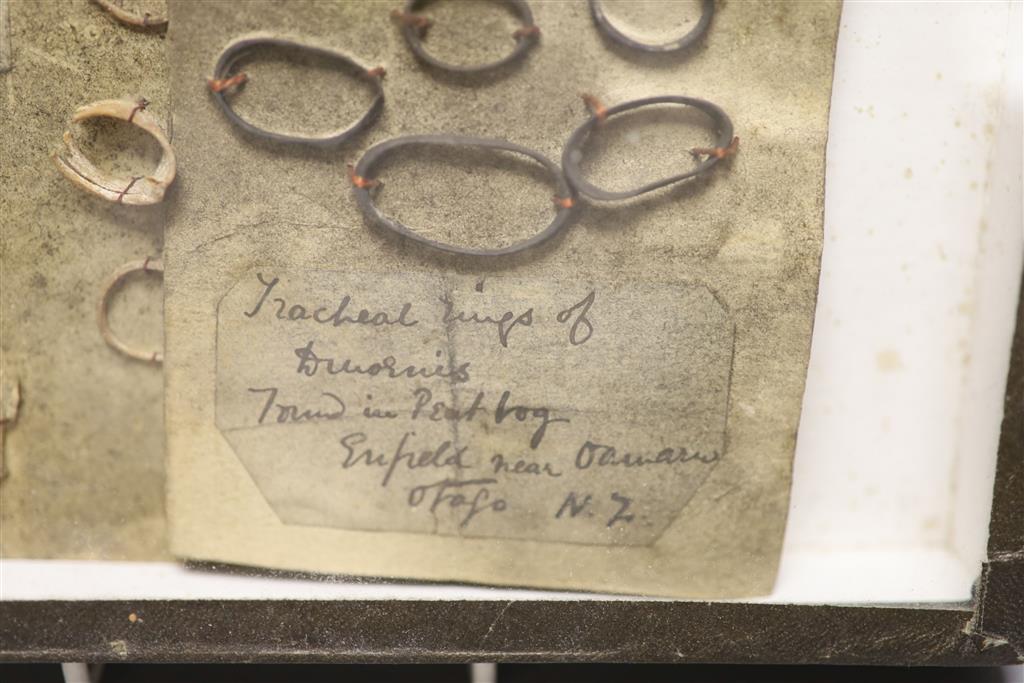 Tracheal rings of
Dinornis
Found in Peat bog
Enfield near Oamaru
Otago N.Z.